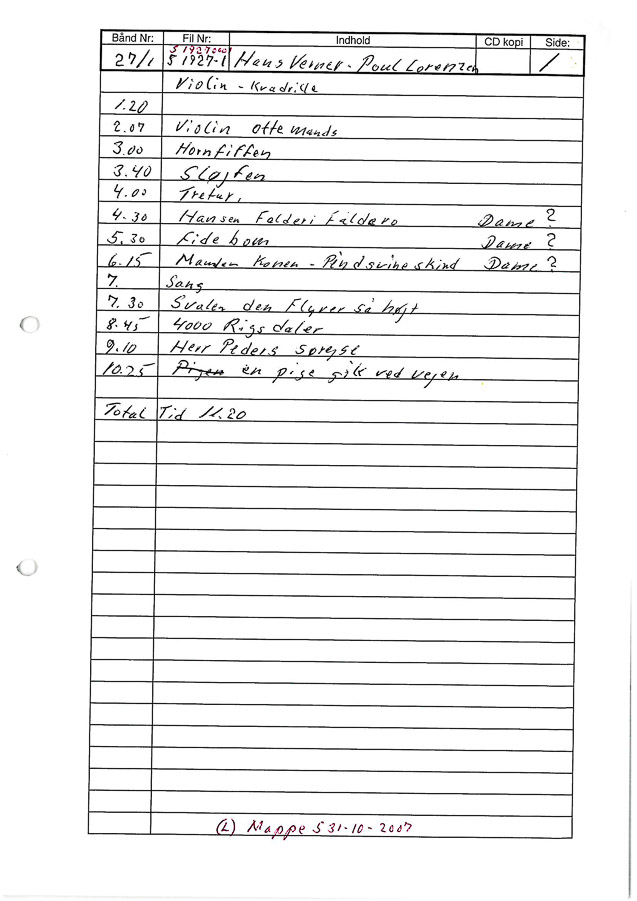 Bånd Nr: Fil Nr: Indhold CD kopi Side:
S 1927000
27/1 S 1927-1 Hans Verner - Poul Lorenzen 1
Violin - Kvadrille
1.20
2.07 Violin ottemands
3.00 Hornfiffen
3.40 Sløjfen
4.00 Tretur,
4.30 Hansen Falderi Faldero Dame ?
5.30 Fide bom Dame ?
6.15 Manden Konen - Pindsvineskind Dame ?
7. Sang
7.30 Svalen den Flyver så højt
8.45 4000 Rigsdaler
9.10 Herr Peders
10.25 Pigen en pige gik ved vejen
Total Tid 11.20
(L) Mappe S 31-10-2007